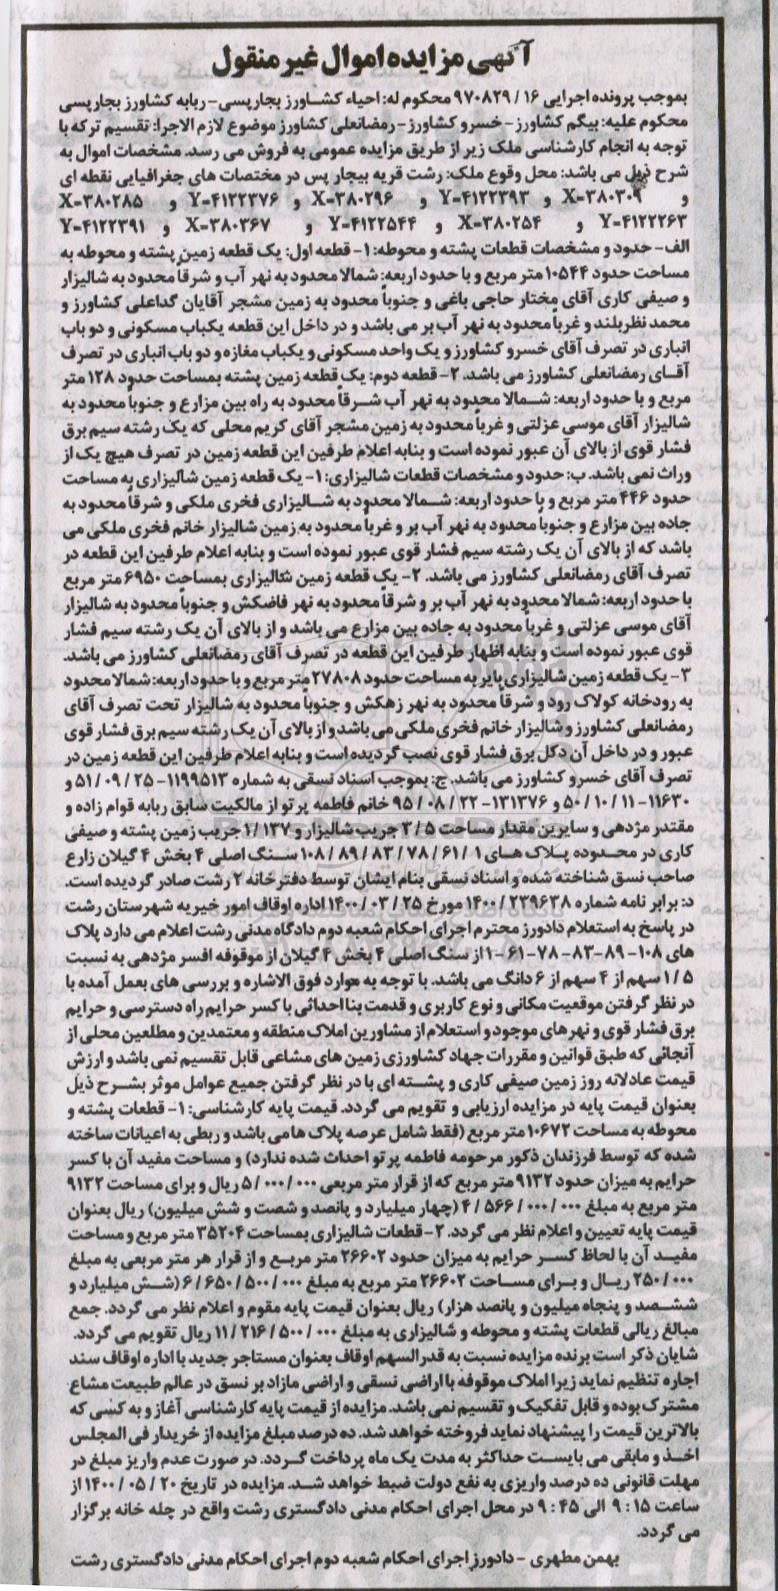 آگهی مزایده اموال غیر منقول
بموجب پرونده اجرایی ۱۶/ ۹۷۰۸۲۹ محکوم له: احیاء کشاورز بجارپسی- ربابه کشاورز بجارپسی
محکوم علیه: بیگم کشاورز- خسرو کشاورز- رمضانعلی کشاورز موضوع لازم الاجرا: تقسیم ترکه با
توجه به انجام کارشناسی ملک زیر از طریق مزایده عمومی به فروش می رسد. مشخصات اموال به
شرح ذیل می باشد: محل وقوع ملک: رشت قریه بیجار پس در مختصات های جغرافیایی نقطه ای
X=۳۸۰۳۰۹ و Y=۴۱۲۲۳۹۳ و X=۳۸۰۲۹۶ و Y=۴۱۲۲۳۷۶ و X=۳۸۰۲۸۵ و
Y=۴۱۲۲۲۶۳ و X=۳۸۰۲۵۴ و Y=۴۱۲۲۵۴۴ و X=۳۸۰۳۶۷ و Y=۴۱۲۲۳۹۱
الف- حدود و مشخصات قطعات پشته و محوطه: ۱- قطعه اول: یک قطعه زمین پشته و محوطه به
مساحت حدود ۱۰۵۴۴ متر مربع و با حدود اربعه: شمالا محدود به نهر آب و شرقاً محدود به شالیزار
و صیفی کاری آقای مختار حاجی باغی و جنوباً محدود به زمین مشجر آقایان گداعلی کشاورز و
محمد نظربلند و غرباً محدود به نهر آب بر می باشد و در داخل این قطعه یکباب مسکونی و دو باب
انباری در تصرف آقای خسرو کشاورز و یک واحد مسکونی و یکباب مغازه و دو باب انباری در تصرف
آقای رمضانعلی کشاورز می باشد. ۲- قطعه دوم: یک قطعه زمین پشته بمساحت حدود ۱۲۸ متر
مربع و با حدود اربعه: شمالا محدود به نهر آب شرقاً محدود به راه بین مزارع و جنوباً محدود به
شالیزار آقای موسی عزلتی و غرباً محدود به زمین مشجر آقای کریم محلی که یک رشته سیم برق
فشار قوی از بالای آن عبور نموده است و بنابه اعلام طرفین این قطعه زمین در تصرف هیچ یک از
وراث نمی باشد. ب: حدود و مشخصات قطعات شالیزاری: ۱- یک قطعه زمین شالیزاری به مساحت
حدود ۴۴۶ متر مربع و با حدود اربعه: شمالا محدود به شالیزاری فخری ملکی و شرقاً محدود به
جاده بین مزارع و جنوباً محدود به نهر آب بر و غرباً محدود به زمین شالیزار خانم فخری ملکی می
باشد که از بالای آن یک رشته سیم فشار قوی عبور نموده است و بنابه اعلام طرفین این قطعه در
تصرف آقای رمضانعلی کشاورز می باشد. ۲- یک قطعه زمین شالیزاری بمساحت ۶۹۵۰ متر مربع
با حدود اربعه: شمالا محدود به نهر آب بر و شرقاً محدود به نهر فاضکش و جنوباً محدود به شالیزار
آقای موسی عزلتی و غرباً محدود به جاده بین مزارع می باشد و از بالای آن یک رشته سیم فشار
قوی عبور نموده است و بنابه اظهار طرفین این قطعه در تصرف آقای رمضانعلی کشاورز می باشد.
۳- یک قطعه زمین شالیزاری بایر به مساحت حدود ۲۷۸۰۸ متر مربع و با حدود اربعه: شمالا محدود
به رودخانه کولاک رود و شرقاً محدود به نهر زهکش و جنوباً محدود به شالیزار تحت تصرف آقای
رمضانعلی کشاورز و شالیزار خانم فخری ملکی می باشد و از بالای آن یک رشته سیم برق فشار قوی
عبور و در داخل آن دکل برق فشار قوی نصب گردیده است و بنابه اعلام طرفین این قطعه زمین در
تصرف آقای خسرو کشاورز می باشد. ج: بموجب اسناد نسقی به شماره ۱۱۹۹۵۱۳- ۲۵/ ۰۹/ ۵۱ و
۱۱۶۳۰- ۱۱/ ۱۰/ ۵۰ و ۱۳۱۳۷۶- ۲۲/ ۰۸/ ۹۵ خانم فاطمه پرتو از مالکیت سابق ربابه قوام زاده و
مقتدر مژدهی و سایرین مقدار مساحت ۵/ ۳ جریب شالیزار و ۱۳۷/ ۱ جریب زمین پشته و صیفی
کاری در محدوده پلاک های ۱/ ۶۱/ ۷۸/ ۸۳/ ۸۹/ ۱۰۸ سنگ اصلی ۴ بخش ۴ گیلان زارع
صاحب نسق شناخته شده و اسناد نسقی بنام ایشان توسط دفترخانه ۲ رشت صادر گردیده است.
د: برابر نامه شماره ۲۳۹۶۳۸/ ۱۴۰۰ مورخ ۲۵/ ۰۳/ ۱۴۰۰ اداره اوقاف امور خیریه شهرستان رشت
در پاسخ به استعلام دادورز محترم اجرای احکام شعبه دوم دادگاه مدنی رشت اعلام می دارد پلاک
های ۱۰۸-۸۹-۸۳-۷۸-۶۱-۱ از سنگ اصلی ۴ بخش ۴ گیلان از موقوفه افسر مژدهی به نسبت
۵/ ۱ سهم از ۴ سهم از ۶ دانگ می باشد. با توجه به موارد فوق الاشاره و بررسی های بعمل آمده با
در نظر گرفتن موقعیت مکانی و نوع کاربری و قدمت بنا احداثی با کسر حرایم راه دسترسی و حرایم
برق فشار قوی و نهر های موجود و استعلام از مشاورین املاک منطقه و معتمدین و مطلعین محلی از
آنجائی که طبق قوانین و مقررات جهاد کشاورزی زمین های مشاعی قابل تقسیم نمی باشد و ارزش
قیمت عادلانه روز زمین صیفی کاری و پشته ای با در نظر گرفتن جمیع عوامل موثر بشرح ذیل
بعنوان قیمت پایه در مزایده ارزیابی و تقویم می گردد. قیمت پایه کارشناسی: ۱- قطعات پشته و
محوطه به مساحت ۱۰۶۷۲ متر مربع (فقط شامل عرصه پلاک ها می باشد و ربطی به اعیانات ساخته
شده که توسط فرزندان ذکور مرحومه فاطمه پرتو احداث شده ندارد) و مساحت مفید آن با کسر
حرایم به میزان حدود ۹۱۳۲ متر مربع که از قرار متر مربعی ۰۰۰/ ۰۰۰/ ۵ ریال و برای مساحت ۹۱۳۲
متر مربع به مبلغ ۰۰۰/ ۰۰۰/ ۵۶۶/ ۴ (چهار میلیارد و پانصد و شصت و شش میلیون) ریال بعنوان
قیمت پایه تعیین و اعلام نظر می گردد. ۲- قطعات شالیزاری بمساحت ۳۵۲۰۴ متر مربع و مساحت
مفید آن با لحاظ کسر حرایم به میزان حدود ۲۶۶۰۲ متر مربع و از قرار هر متر مربعی به مبلغ
۰۰۰/ ۲۵۰ ریال و برای مساحت ۲۶۶۰۲ متر مربع به مبلغ ۰۰۰/ ۵۰۰/ ۶۵۰/ ۶ (شش میلیارد و
ششصد و پنجاه میلیون و پانصد هزار) ریال بعنوان قیمت پایه مقوم و اعلام نظر می گردد. جمع
مبالغ ریالی قطعات پشته و محوطه و شالیزاری به مبلغ ۰۰۰/ ۵۰۰/ ۲۱۶/ ۱۱ ریال تقویم می گردد.
شایان ذکر است برنده مزایده نسبت به قدرالسهم اوقاف بعنوان مستاجر جدید با اداره اوقاف سند
اجاره تنظیم نماید زیرا املاک موقوفه با اراضی نسقی و اراضی مازاد بر نسق در عالم طبیعت مشاع
مشترک بوده و قابل تفکیک و تقسیم نمی باشد. مزایده از قیمت پایه کارشناسی آغاز و به کسی که
بالاترین قیمت را پیشنهاد نماید فروخته خواهد شد. ده درصد مبلغ مزایده از خریدار فی المجلس
اخذ و مابقی می بایست حداکثر به مدت یک ماه پرداخت گردد. در صورت عدم واریز مبلغ در
مهلت قانونی ده درصد واریزی به نفع دولت ضبط خواهد شد. مزایده در تاریخ ۲۰/ ۰۵/ ۱۴۰۰ از
ساعت ۱۵: ۹ الی ۴۵: ۹ در محل اجرای احکام مدنی دادگستری رشت واقع در چله خانه برگزار
می گردد.
بهمن مطهری - دادورز اجرای احکام شعبه دوم اجرای احکام مدنی دادگستری رشت